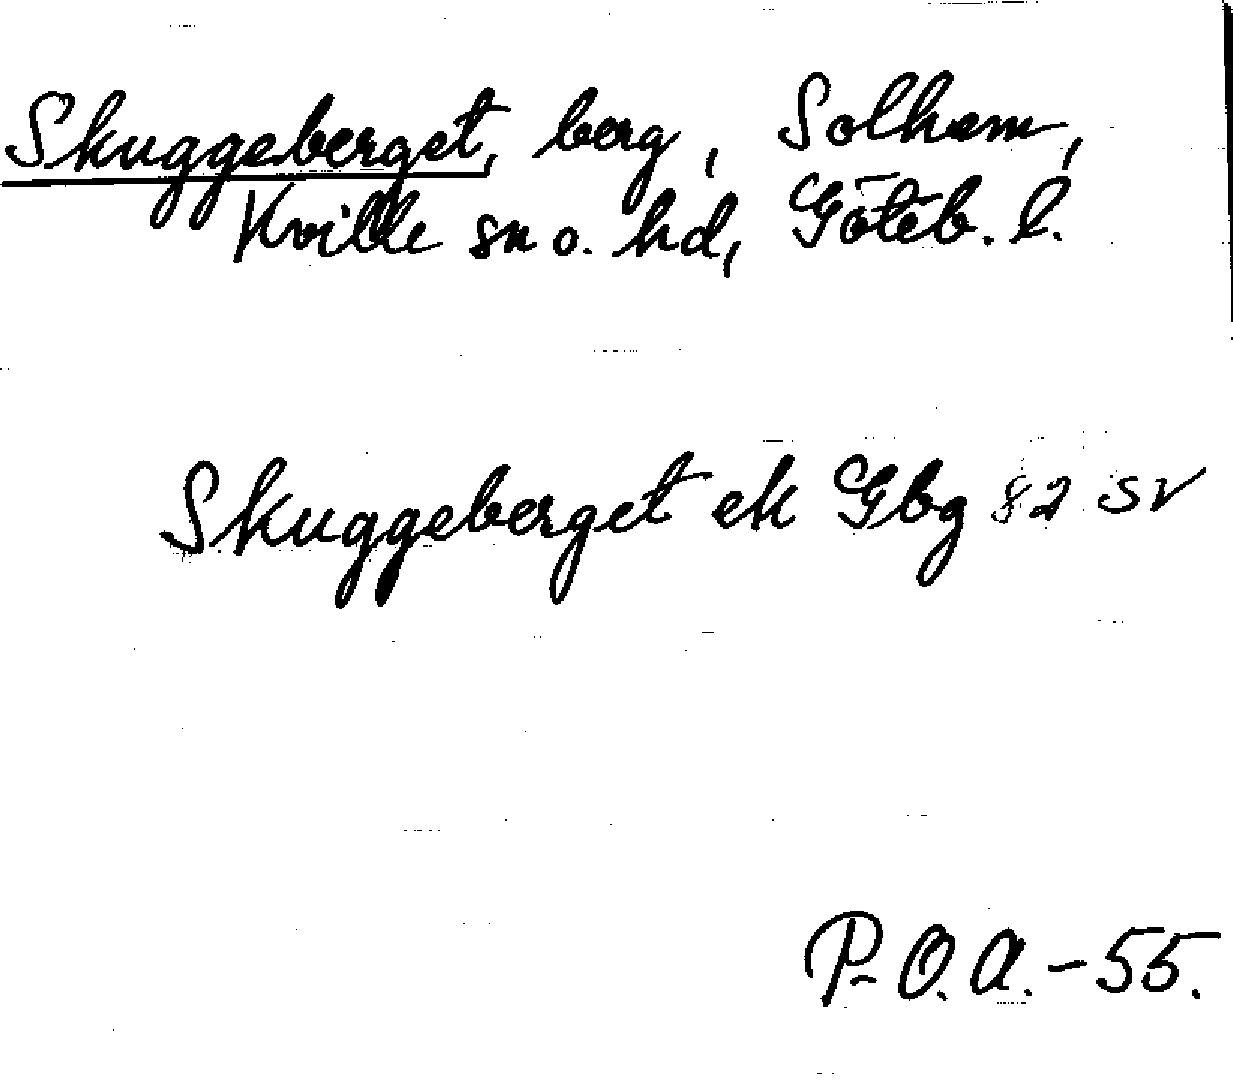 Skuggeberget, berg, Solhem,
Kville sn o. hd, Göteb. l.
Skuggeberget ek Gbg 82 SV
P.O.A.-55.